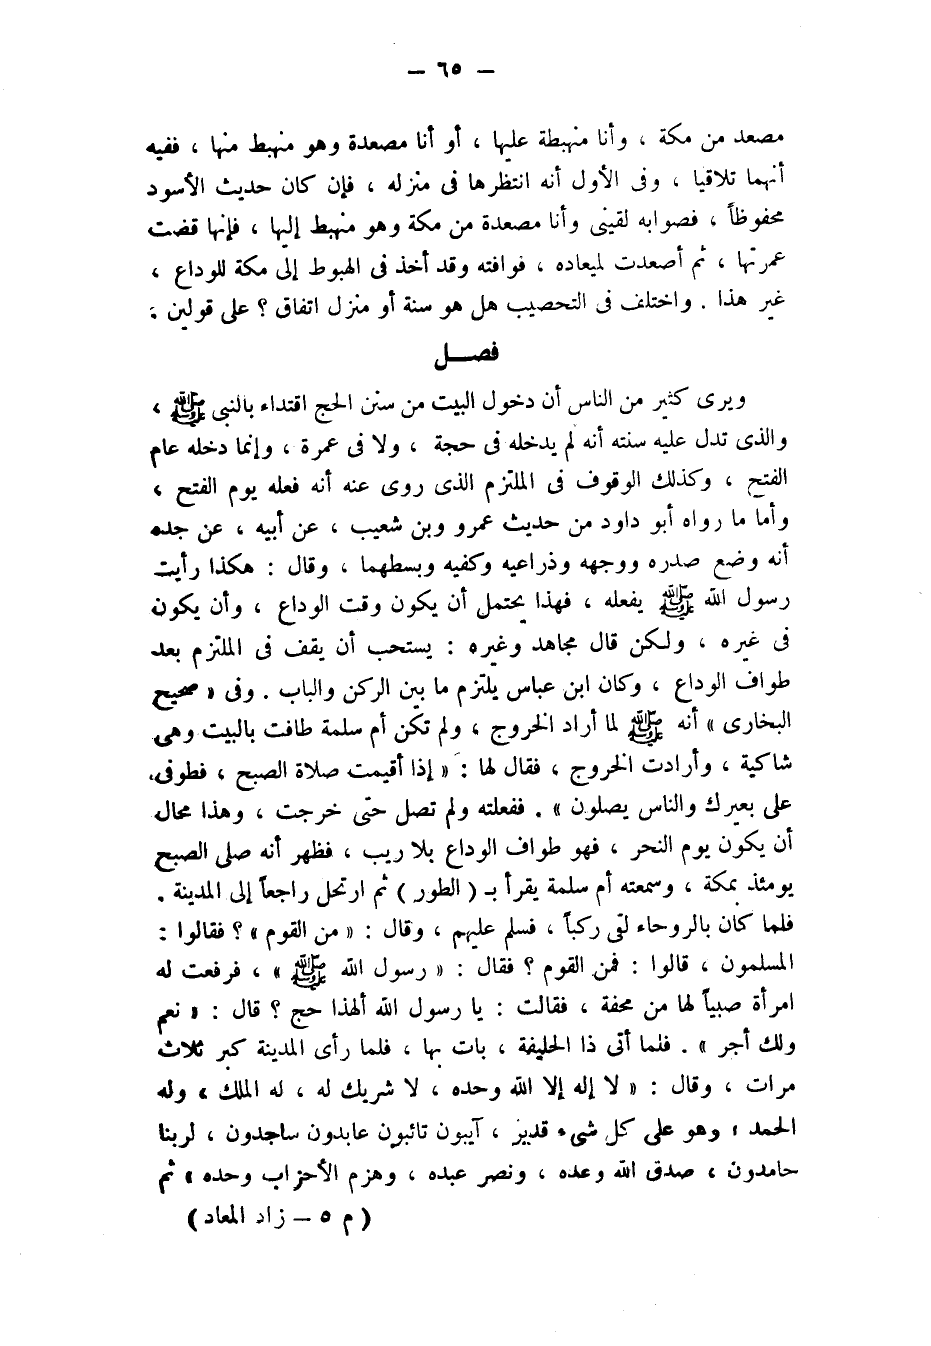 — ٦٥ —
مصعد من مكة ، وأنا منهبطة عليها ، أو أنا مصعدة وهو منهبط منها ، ففيه
أنهما تلاقيا ، وفى الأول أنه انتظرها فى منزله ، فإن كان حديث الأسود
محفوظاً ، فصوابه لقينى وأنا مصعدة من مكة وهو منهبط إليها ، فإنها قضت
عمرتها ، ثم أصعدت لميعاده ، فوافته وقد أخذ فى الهبوط إلى مكة للوداع ،
غير هذا . واختلف فى التحصيب هل هو سنة أو منزل اتفاق ؟ على قولين :
فصــل
ويرى كثير من الناس أن دخول البيت من سنن الحج اقتداء بالنبى ﷺ ،
والذى تدل عليه سنته أنه لم يدخله فى حجة ، ولا فى عمرة ، وإنما دخله عام
الفتح ، وكذلك الوقوف فى الملتزم الذى روى عنه أنه فعله يوم الفتح ،
وأما ما رواه أبو داود من حديث عمرو وبن شعيب ، عن أبيه ، عن جده
أنه وضع صدره ووجهه وذراعيه وكفيه وبسطهما ، وقال : هكذا رأيت
رسول الله ﷺ يفعله ، فهذا يحتمل أن يكون وقت الوداع ، وأن يكون
فى غيره ، ولكن قال مجاهد وغيره : يستحب أن يقف فى الملتزم بعد
طواف الوداع ، وكان ابن عباس يلتزم ما بين الركن والباب . وفى « صحيح
البخارى » أنه ﷺ لما أراد الخروج ، ولم تكن أم سلمة طافت بالبيت وهى
شاكية ، وأرادت الخروج ، فقال لها : « إذا أقيمت صلاة الصبح ، فطوفى
على بعيرك والناس يصلون » . ففعلته ولم تصل حتى خرجت ، وهذا محال
أن يكون يوم النحر ، فهو طواف الوداع بلا ريب ، فظهر أنه صلى الصبح
يومئذ بمكة ، وسمعته أم سلمة يقرأ بـ ( الطور ) ثم ارتحل راجعاً إلى المدينة .
فلما كان بالروحاء لقى ركباً ، فسلم عليهم ، وقال : « من القوم » ؟ فقالوا :
المسلمون ، قالوا : فمن القوم ؟ فقال : « رسول الله ﷺ » ، فرفعت له
امرأة صبياً لها من محفة ، فقالت : يا رسول الله ألهذا حج ؟ قال : « نعم
ولك أجر » . فلما أتى ذا الحليفة ، بات بها ، فلما رأى المدينة كبر ثلاث
مرات ، وقال : « لا إله إلا الله وحده ، لا شريك له ، له الملك ، وله
الحمد ، وهو على كل شىء قدير ، آيبون تائبون عابدون ساجدون ، لربنا
حامدون ، صدق الله وعده ، ونصر عبده ، وهزم الأحزاب وحده » ثم
( م ٥ – زاد المعاد )